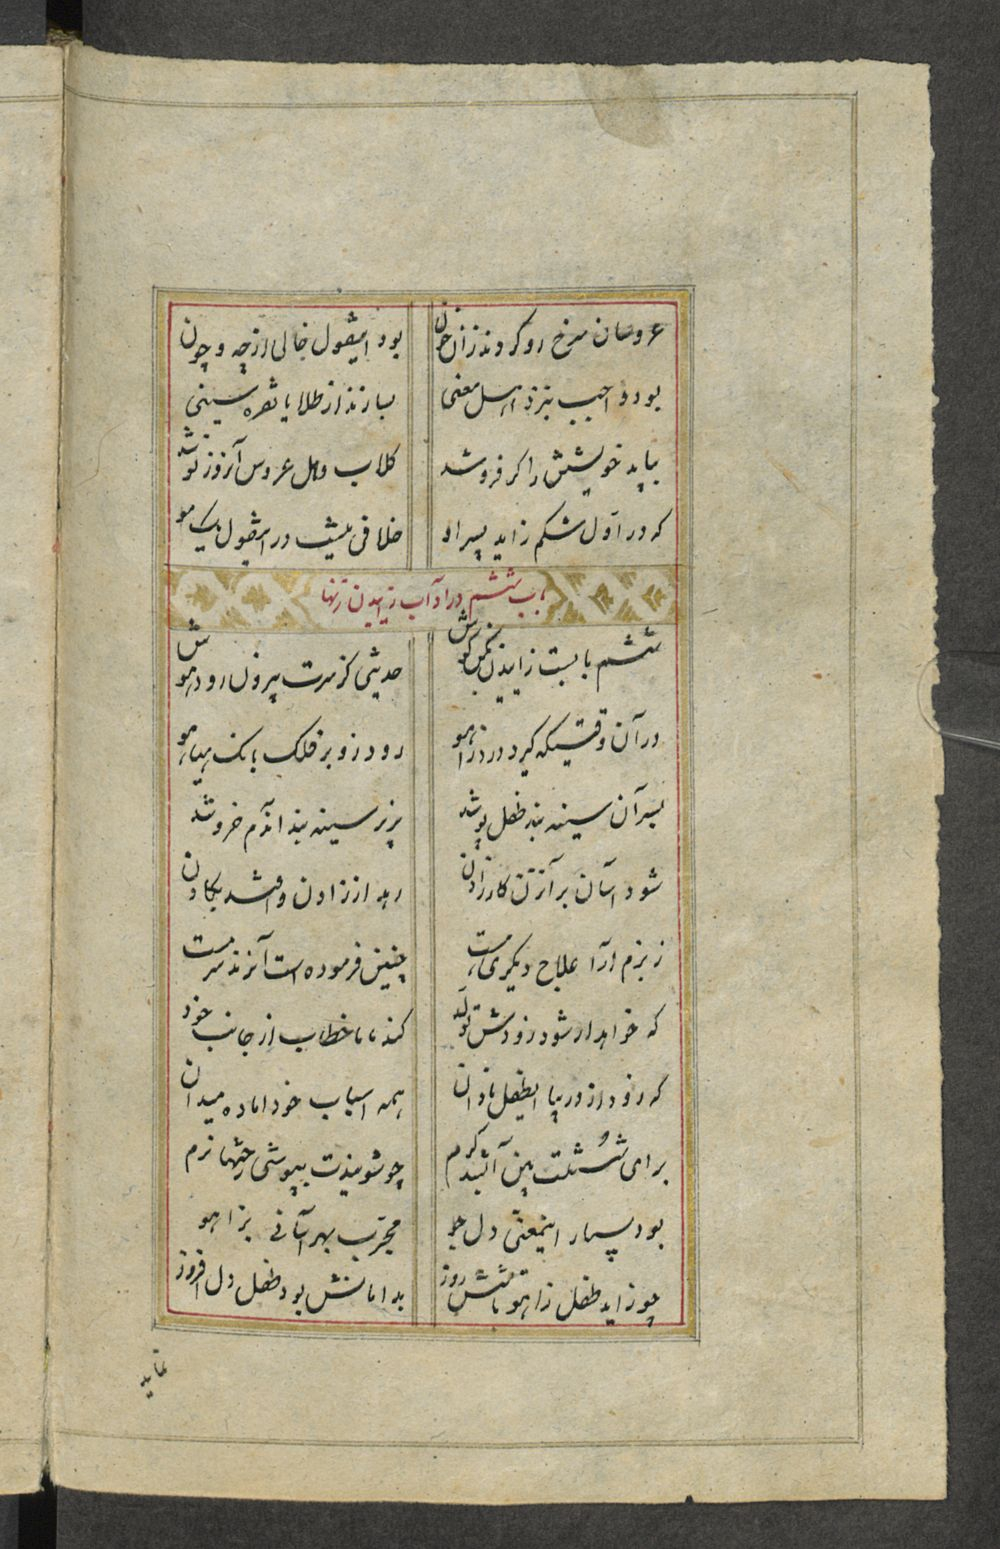 عروسان سرخ رو کردند زان خون
بود اینقول خالی از چه و چون
بود واجب بنزد اهل معنی
بسازند از طلا یا نقره سینی
بباید خویشتن را گر فروشد
کلاب وهل عروس آنروز نوشد
که در اول شکم زاید پسر او
خلافی نیست در اینقول یک مو
باب ششم در آداب زاییدن زنها
ششم بابست زاییدن بکن گوش
حدیثی کز سرت بیرون رود هوش
در آن وقتیکه گیرد درد زاهو
رود زو بر فلک بانک هیاهو
بسر آن سینه بند طفل پوشد
بزیر سینه بند آندم خروشد
شود آسان بر آنزن کار زادن
رهد از زادن و افتد بکادن
ز بزم آرا علاج دیگری هست
چنین فرموده است آنرند سرمست
که خواهد ار شود زودش تولد
کند ماما خطاب از جانب خود
که زود از در بیا ایطفل نادان
همه اسباب خود اماده میدان
برای شستنت بین آتشد گرم
چو شویندت بپوشی رختها نرم
بود بسیار اینمعنی دل جو
مجرب بهر آسانی زاهو
چو زاید طفل زاهو تا شش روز
بدامانش بود طفل دل افروز
نماید